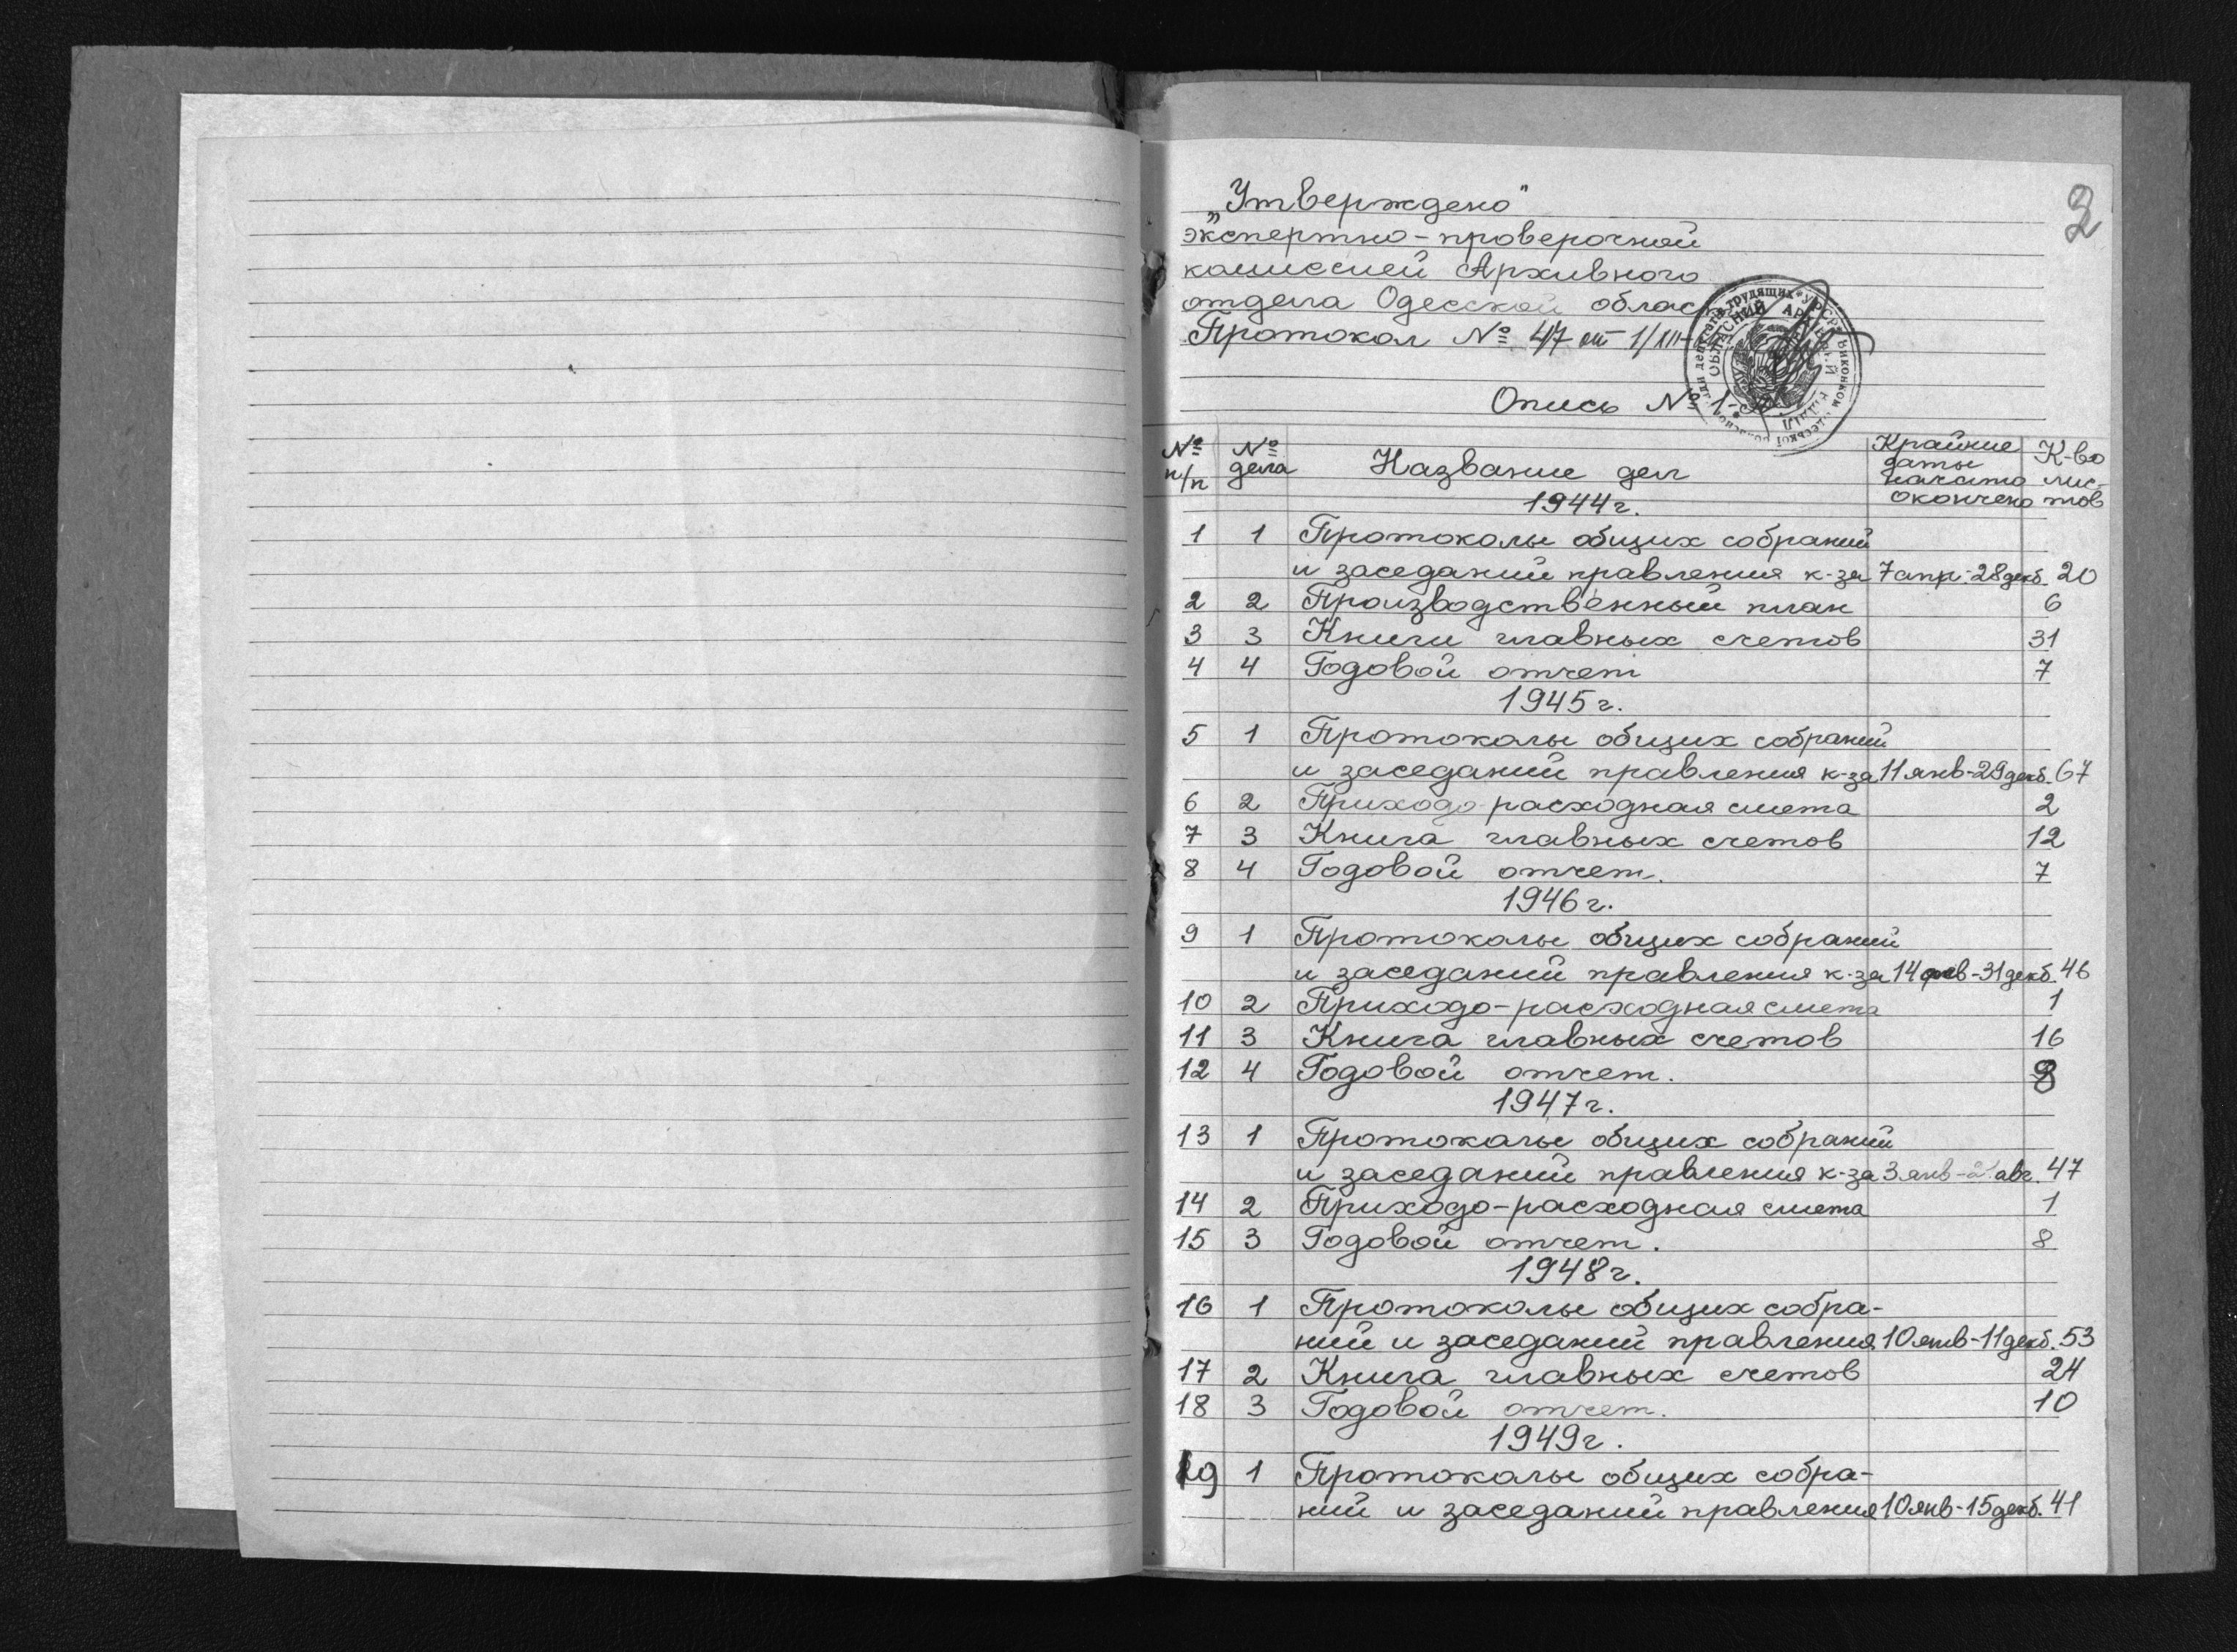 2
„Утверждено"
экспертно-проверочной
комиссией Архивного
отдела Одесской облас
Протокол № 47 от 1/III-
Опись № 1
№ п/п № дела Название дел Крайние даты начато окончено К-во листов
1944г.
1 1 Протоколы общих собраний
и заседаний правления к-за 7 апр.-28 дек. 20
2 2 Производственный план 6
3 3 Книги главных счетов 31
4 4 Годовой отчет 7
1945г.
5 1 Протоколы общих собраний
и заседаний правления к-за 11 янв-29 декб. 67
6 2 Приходо-расходная смета 2
7 3 Книга главных счетов 12
8 4 Годовой отчет. 7
1946г.
9 1 Протоколы общих собраний
и заседаний правления к-за 14 фев-31 декб. 46
10 2 Приходо-расходная смета 1
11 3 Книга главных счетов 16
12 4 Годовой отчет. 8
1947г.
13 1 Протоколы общих собраний
и заседаний правления к-за 3 янв- авг. 47
14 2 Приходо-расходная смета 1
15 3 Годовой отчет. 8
1948г.
16 1 Протоколы общих собра-
ний и заседаний правления 10 янв-11 декб. 53
17 2 Книга главных счетов 24
18 3 Годовой отчет. 10
1949г.
19 1 Протоколы общих собра-
ний и заседаний правления 10 янв-15 декб. 41